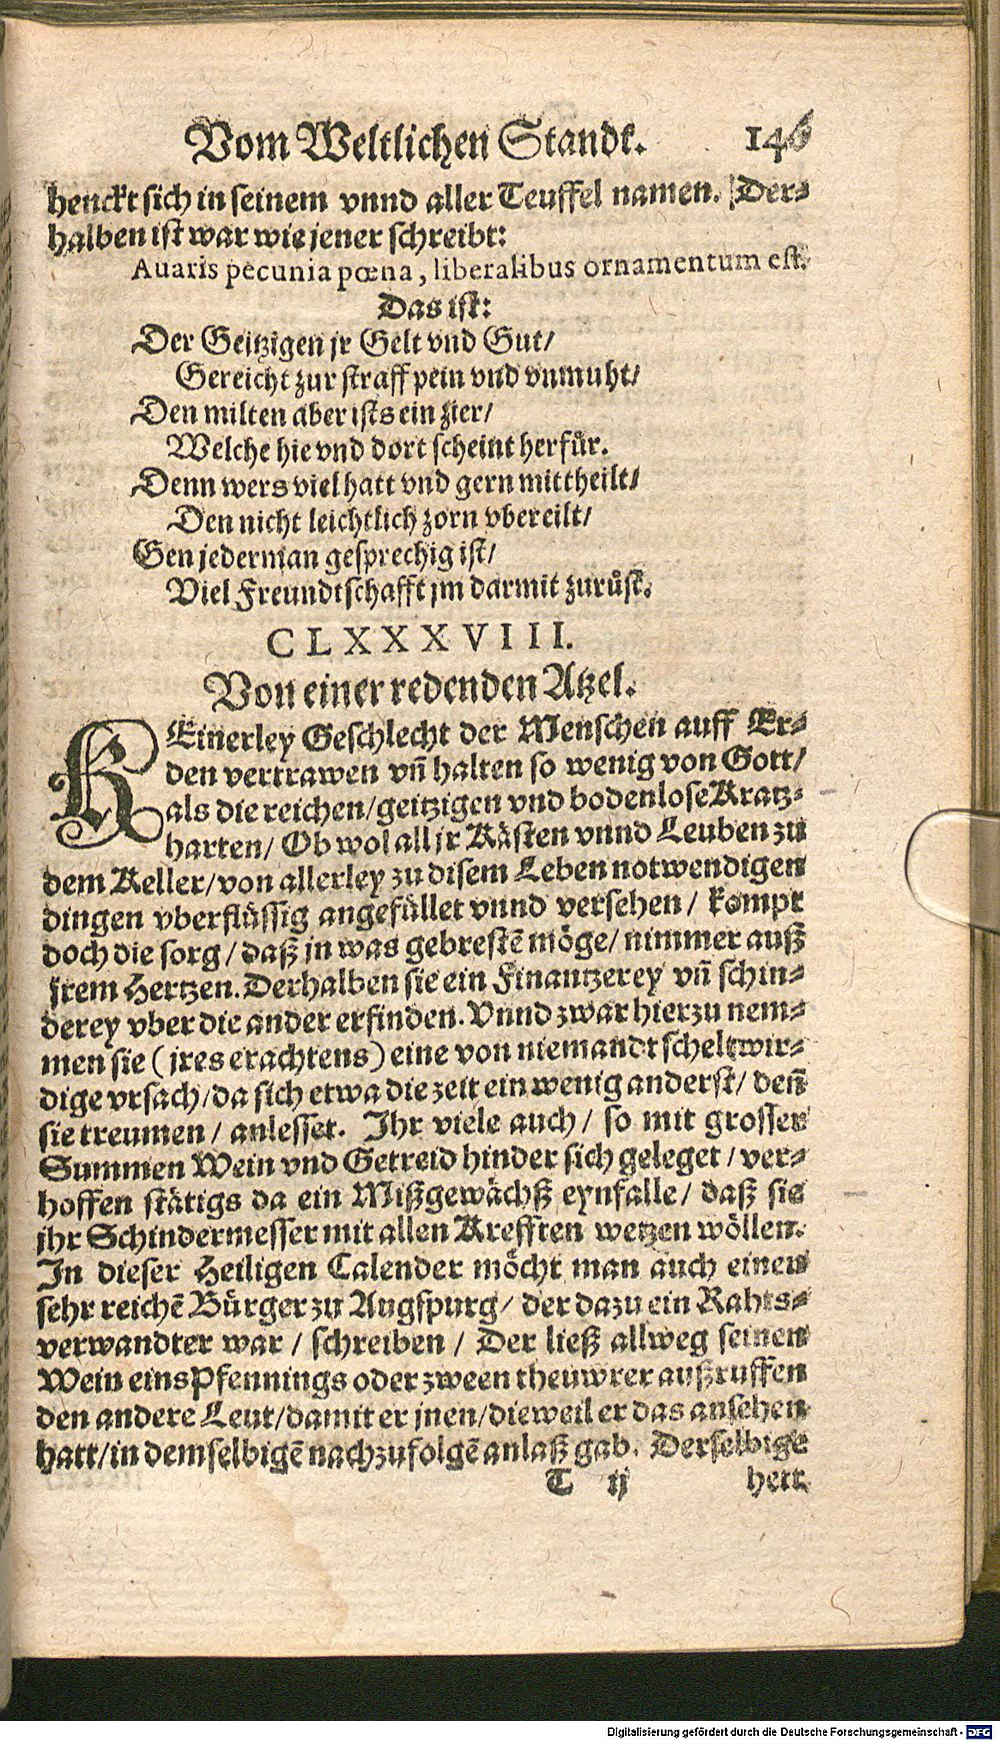 Vom Weltlichen Standt. 146
henckt sich in seinem vnnd aller Teuffel namen. Der-
halben ist war wie jener schreibt:
Avaris pecunia pœna, liberalibus ornamentum est.
Das ist:
Der Geitzigen jr Gelt vnd Gut/
Gereicht zur straff pein vnd vnmuht/
Den milten aber ists ein zier/
Welche hie vnd dort scheint herfür.
Denn wers viel hatt vnd gern mittheilt/
Den nicht leichtlich zorn vbereilt/
Gen jederman gesprechig ist/
Viel Freundtschafft jm darmit zurüst.
CLXXXVIII.
Von einer redenden Atzel.
KEinerley Geschlecht der Menschen auff Er-
den vertrawen vñ halten so wenig von Gott/
als die reichen/geitzigen vnd bodenlose Kratz-
harten/ Ob wol all jr Kästen vnnd Leuben zu
dem Keller/von allerley zu disem Leben notwendigen
dingen vberflüssig angefüllet vnnd versehen/ kompt
doch die sorg/daß jn was gebrestē möge/nimmer auß
jrem Hertzen. Derhalben sie ein Finantzerey vñ schin-
derey vber die ander erfinden. Vnnd zwar hierzu nem-
men sie (jres erachtens) eine von niemandt scheltwir-
dige vrsach/da sich etwa die zeit ein wenig anderst/ deñ
sie treumen/ anlesset. Ihr viele auch/ so mit grossen
Summen Wein vnd Getreid hinder sich geleget/ver-
hoffen stätigs da ein Mißgewächß eynfalle/ daß sie
jhr Schindermesser mit allen Krefften wetzen wöllen.
In dieser Heiligen Calender möcht man auch einen
sehr reichē Bürger zu Augspurg/ der dazu ein Rahts-
verwandter war/ schreiben/ Der ließ allweg seinen
Wein eins Pfennings oder zween theuwrer außruffen
den andere Leut/damit er jnen/dieweil er das ansehen
hatt/in demselbigē nachzufolgē anlaß gab. Derselbige
T ij hett
Digitalisierung gefördert durch die Deutsche Forschungsgemeinschaft - DFG